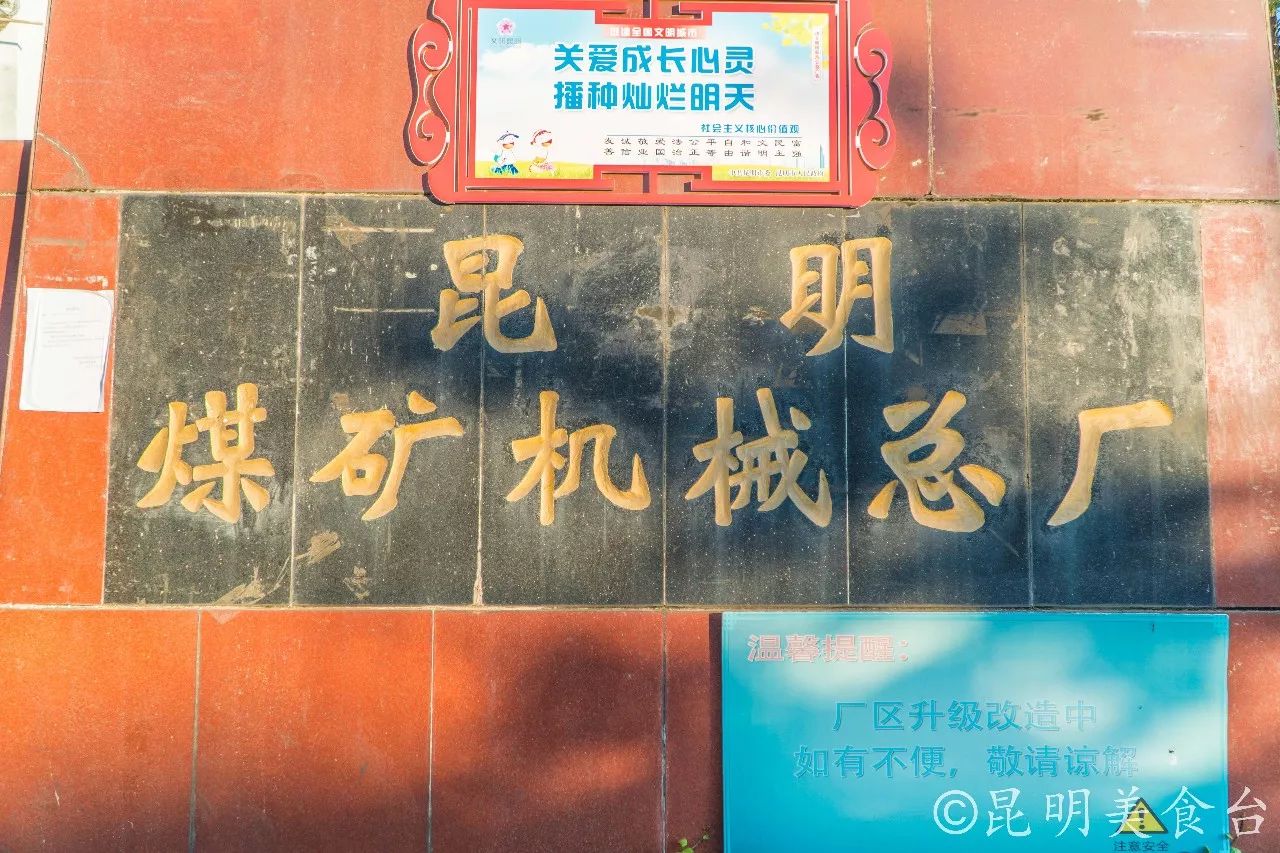 文明昆明
创建全国文明城市
关爱成长心灵
播种灿烂明天
社会主义核心价值观
友诚敬爱法公平自和文民富
善信业国治正等由谐明主强
中共昆明市委 昆明市人民政府
昆明
煤矿机械总厂
温馨提醒：
厂区升级改造中
如有不便，敬请谅解
注意安全
©昆明美食台